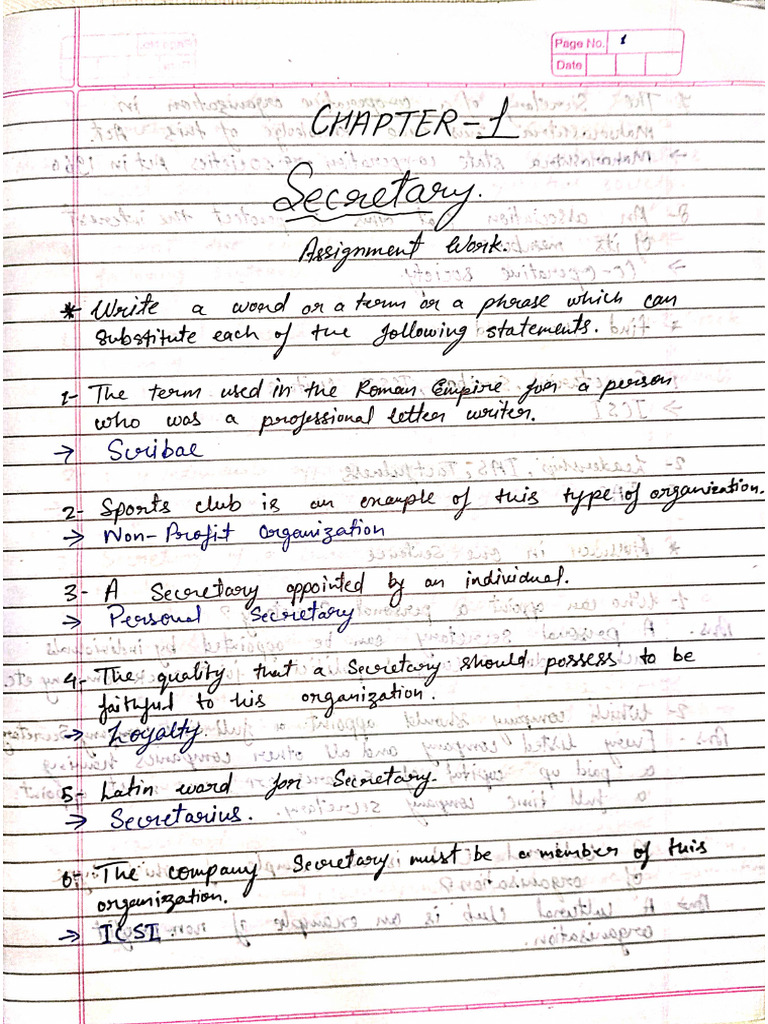 Page No. 1
Date
CHAPTER-1
Secretary.
Assignment Work.
* Write a word or a term or a phrase which can
substitute each of the following statements.
1- The term used in the Roman Empire for a person
who was a professional letter writer.
→ Scribae
2- Sports club is an example of this type of organization.
→ Non-Profit Organization
3- A Secretary appointed by an individual.
→ Personal Secretary
4- The quality that a Secretary should possess to be
faithful to his organization.
→ Loyalty
5- Latin word for Secretary.
→ Secretarius.
6- The company Secretary must be a member of this
organization.
→ ICSI.